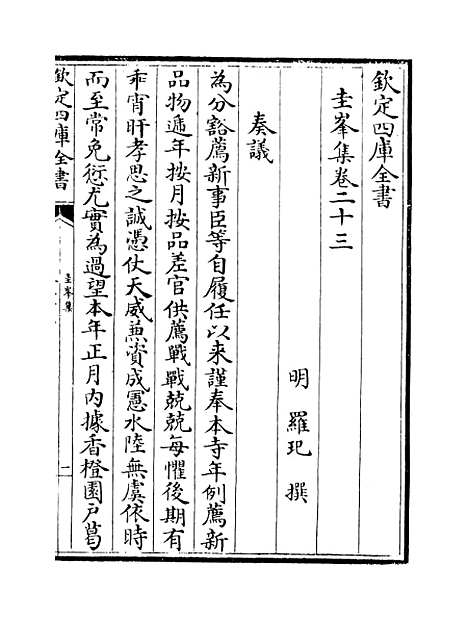 欽定四庫全書
圭峯集卷二十三
明 羅玘 撰
奏議
為分豁薦新事臣等自履任以来謹奉本寺年例薦新
品物遞年按月按品差官供薦戰戰兢兢每懼後期有
乖宵旰孝思之誠憑仗天威兼資成憲水陸無虞依時
而至常免愆尤實為過望本年正月内據香橙園户葛
欽定四庫全書
圭峯集